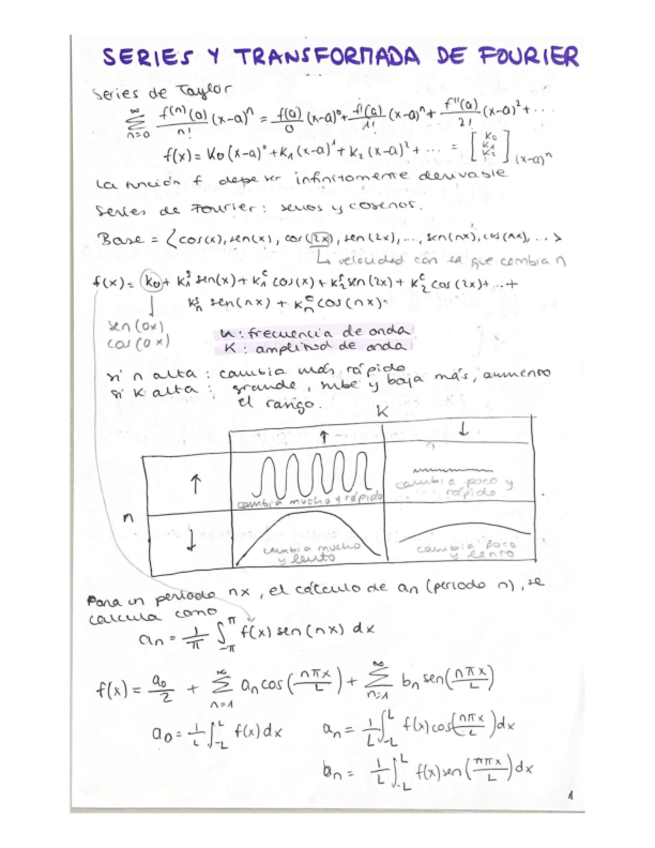 SERIES Y TRANSFORMADA DE FOURIER
Series de Taylor
∞ Σ n=0 f(n)(a)/n! (x-a)ⁿ = f(a)/0 (x-a)⁰ + f'(a)/1! (x-a)ⁿ + f''(a)/2! (x-a)² + ...
f(x) = K0 (x-a)⁰ + K1 (x-a)¹ + K2 (x-a)² + ... = [K0 K1 K2] (x-a)ⁿ
La función f debe ser infinitamente derivable
Series de Fourier: senos y cosenos.
Base = < cos(x), sen(x), cos(2x), sen(2x), ..., sen(nx), cos(nx), ... >
↳ velocidad con la que cambia n
f(x) = K0 + K1ˢ sen(x) + K1ᶜ cos(x) + K2ˢ sen(2x) + K2ᶜ cos(2x) + ... +
Knˢ sen(nx) + Knᶜ cos(nx).
sen(0x)
cos(0x)
n: frecuencia de onda
K: amplitud de onda
si n alta: cambia más rápido
si K alta: grande, sube y baja más, aumento
el rango.
K
↑ ↓
n
↑
cambia mucho y rápido
cambia poco y
rápido
↓
cambia mucho
y lento
cambia poco
y lento
Para un periodo nx, el cálculo de an (periodo n), se
calcula como
an = 1/π ∫_-π^π f(x) sen(nx) dx
f(x) = a0/2 + ∞ Σ n=1 an cos(nπx/L) + ∞ Σ n=1 bn sen(nπx/L)
a0 = 1/L ∫_-L^L f(x) dx an = 1/L ∫_-L^L f(x) cos(nπx/L) dx
bn = 1/L ∫_-L^L f(x) sen(nπx/L) dx
1